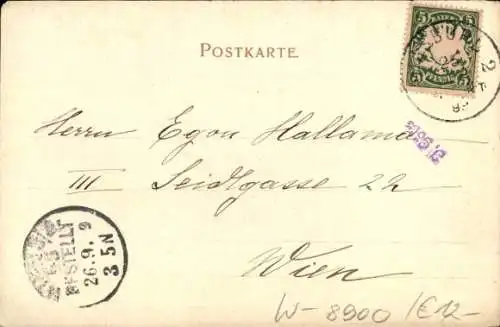 5 BAYERN 5
5 PFENNIG 5
2
POSTKARTE.
Herrn Egon Hallama
III Seidlgasse 22
Wien
BESTELLT
26.9.9
3 5N
W-8900 /€12-